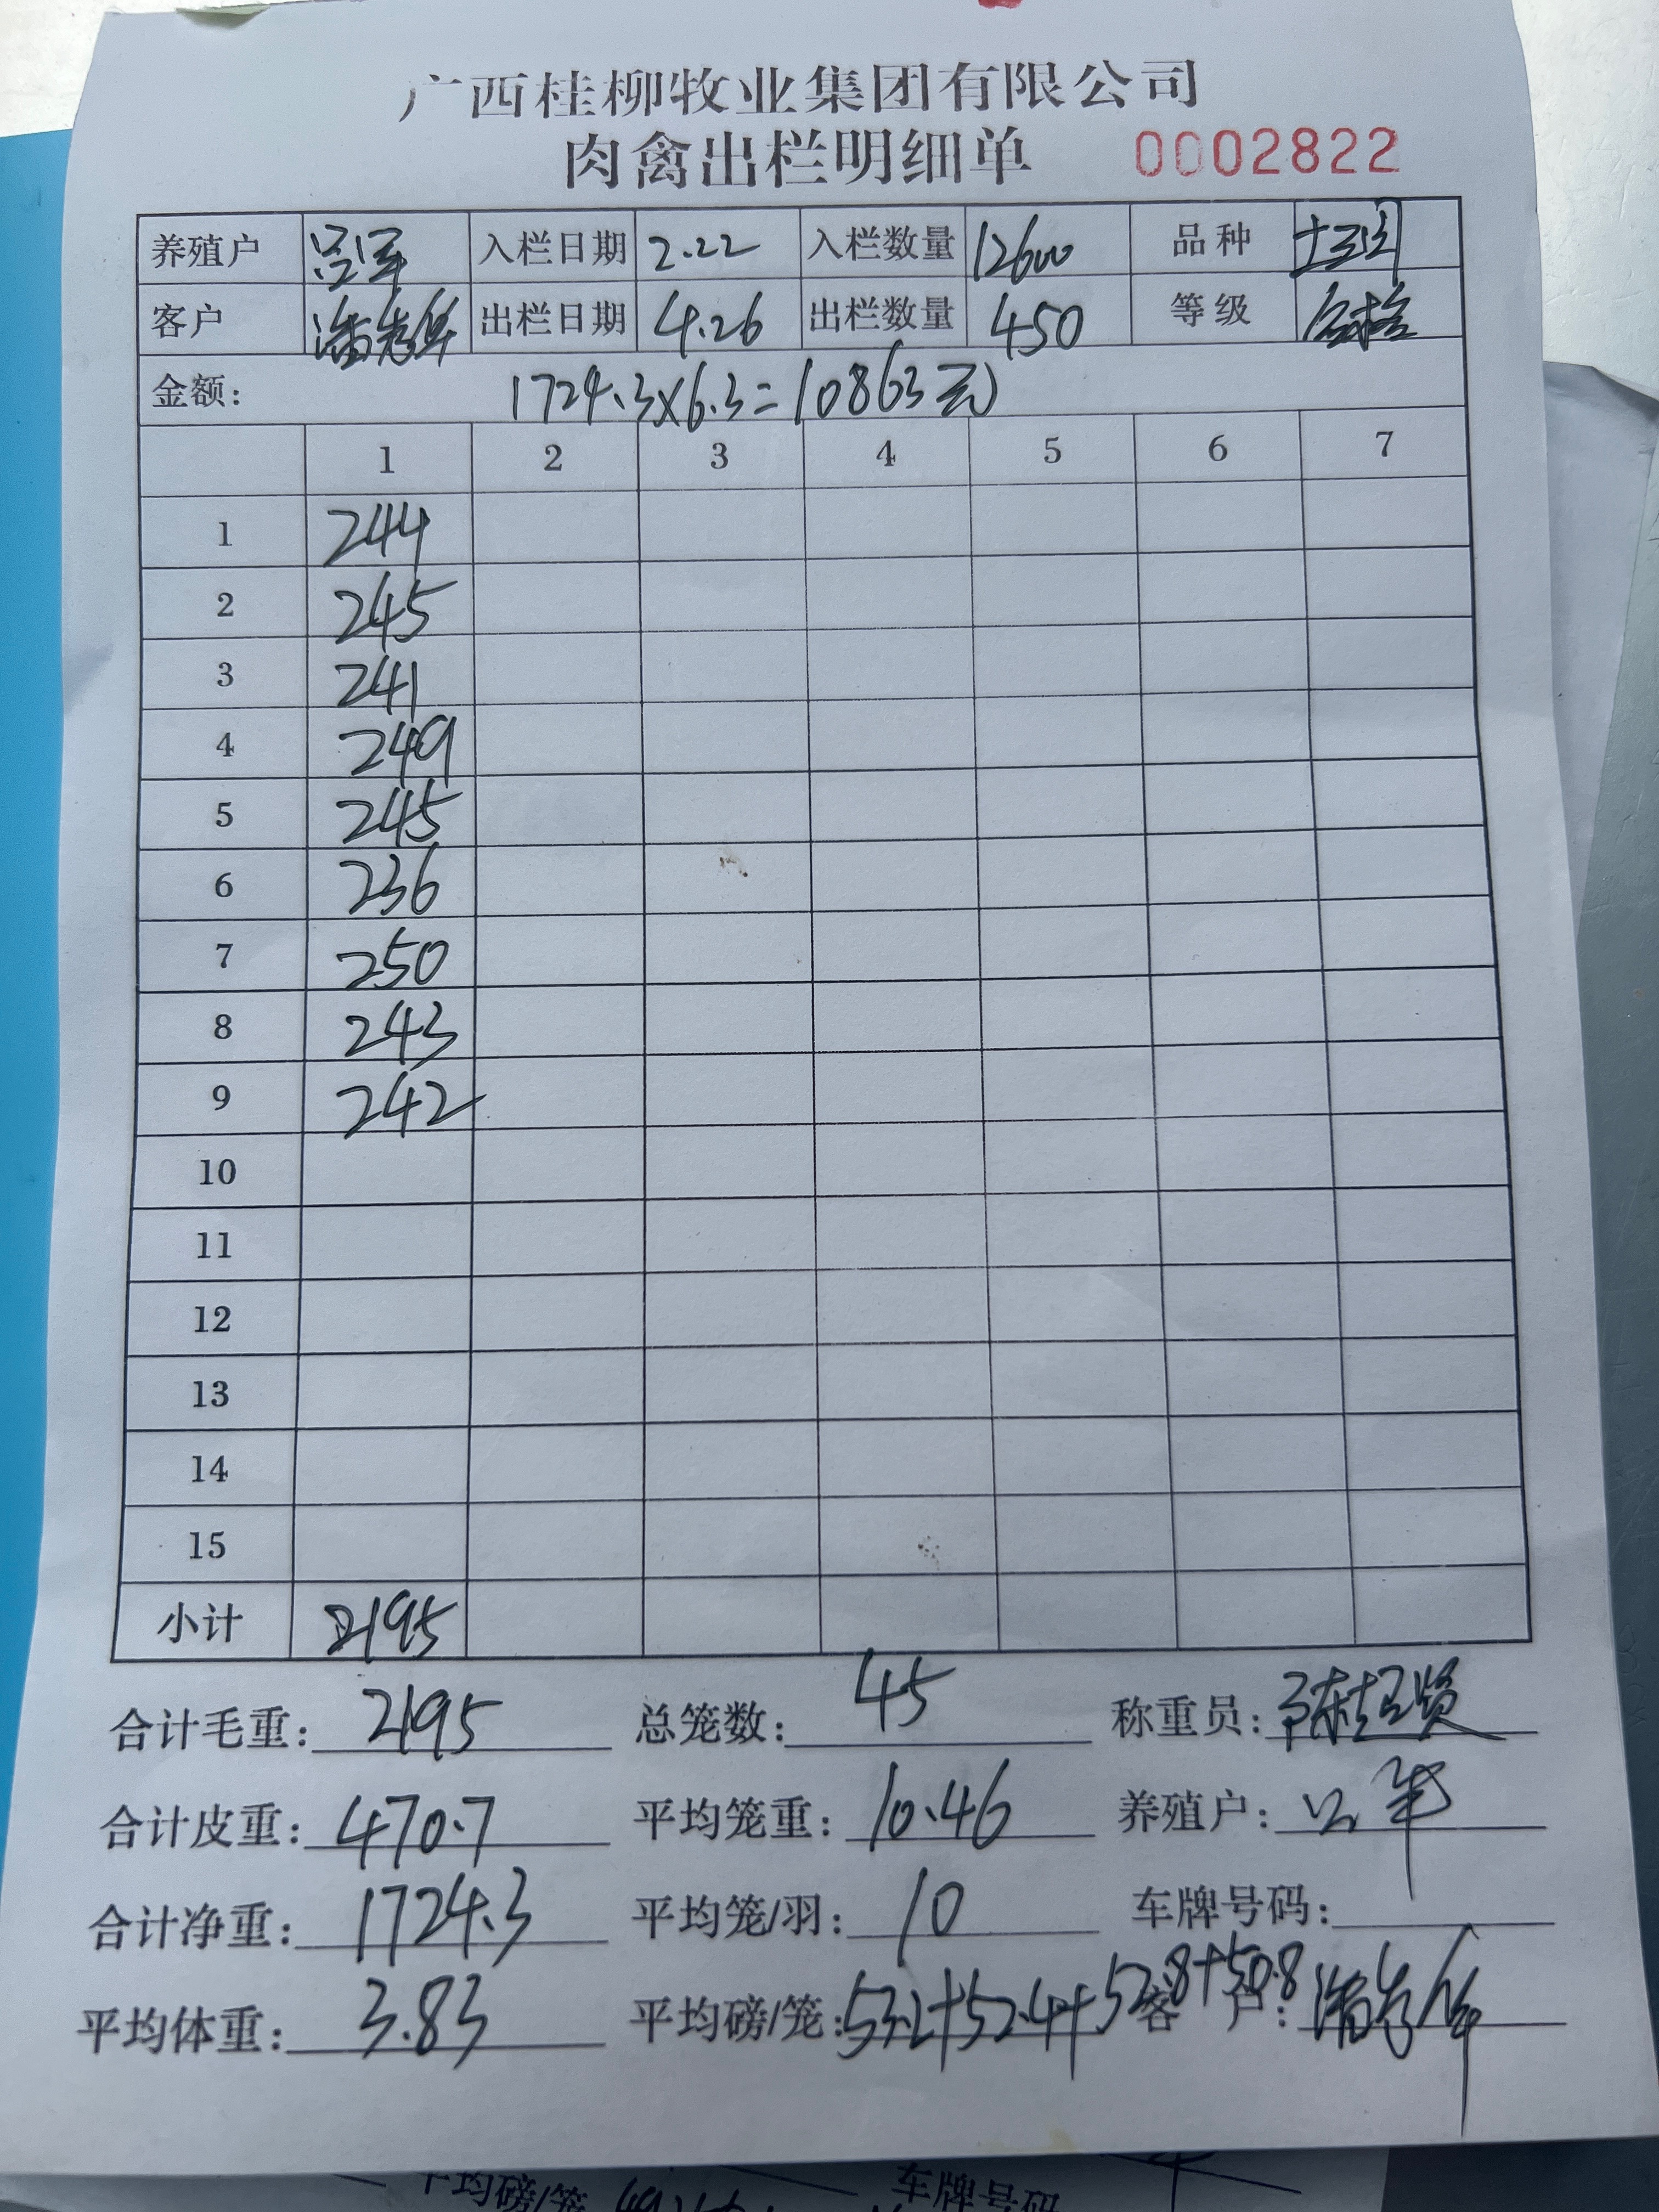 广西桂柳牧业集团有限公司
肉禽出栏明细单 0002822
养殖户 吕军 入栏日期 2.22 入栏数量 12600 品种
客户 潘志年 出栏日期 4.26 出栏数量 450 等级 合格
金额: 1724.3×6.3=10863元
1 2 3 4 5 6 7
1 244
2 245
3 241
4 249
5 245
6 236
7 250
8 243
9 242
10
11
12
13
14
15
小计 2195
合计毛重: 2195 总笼数: 45 称重员:
合计皮重: 470.7 平均笼重: 10.46 养殖户: 军
合计净重: 1724.3 平均笼/羽: 10 车牌号码:
平均体重: 3.83 平均磅/笼: 53.2+52.4+52.8+50.8 客户: 潘志年
平均磅/笼 车牌号码